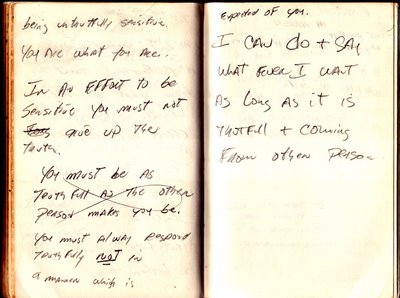 being untruthfully sensitive
You Are what you Are.
In An EFFort to be
Sensitive you must not
give up the
truth.
You must be As
Truthfull As the other
Person makes you be.
You must Alway Respond
Truthfully not in
a manner which is
Expected of you.
I CAN do + SAy
what Ever I want
As long As it is
truthfull + coming
From other person